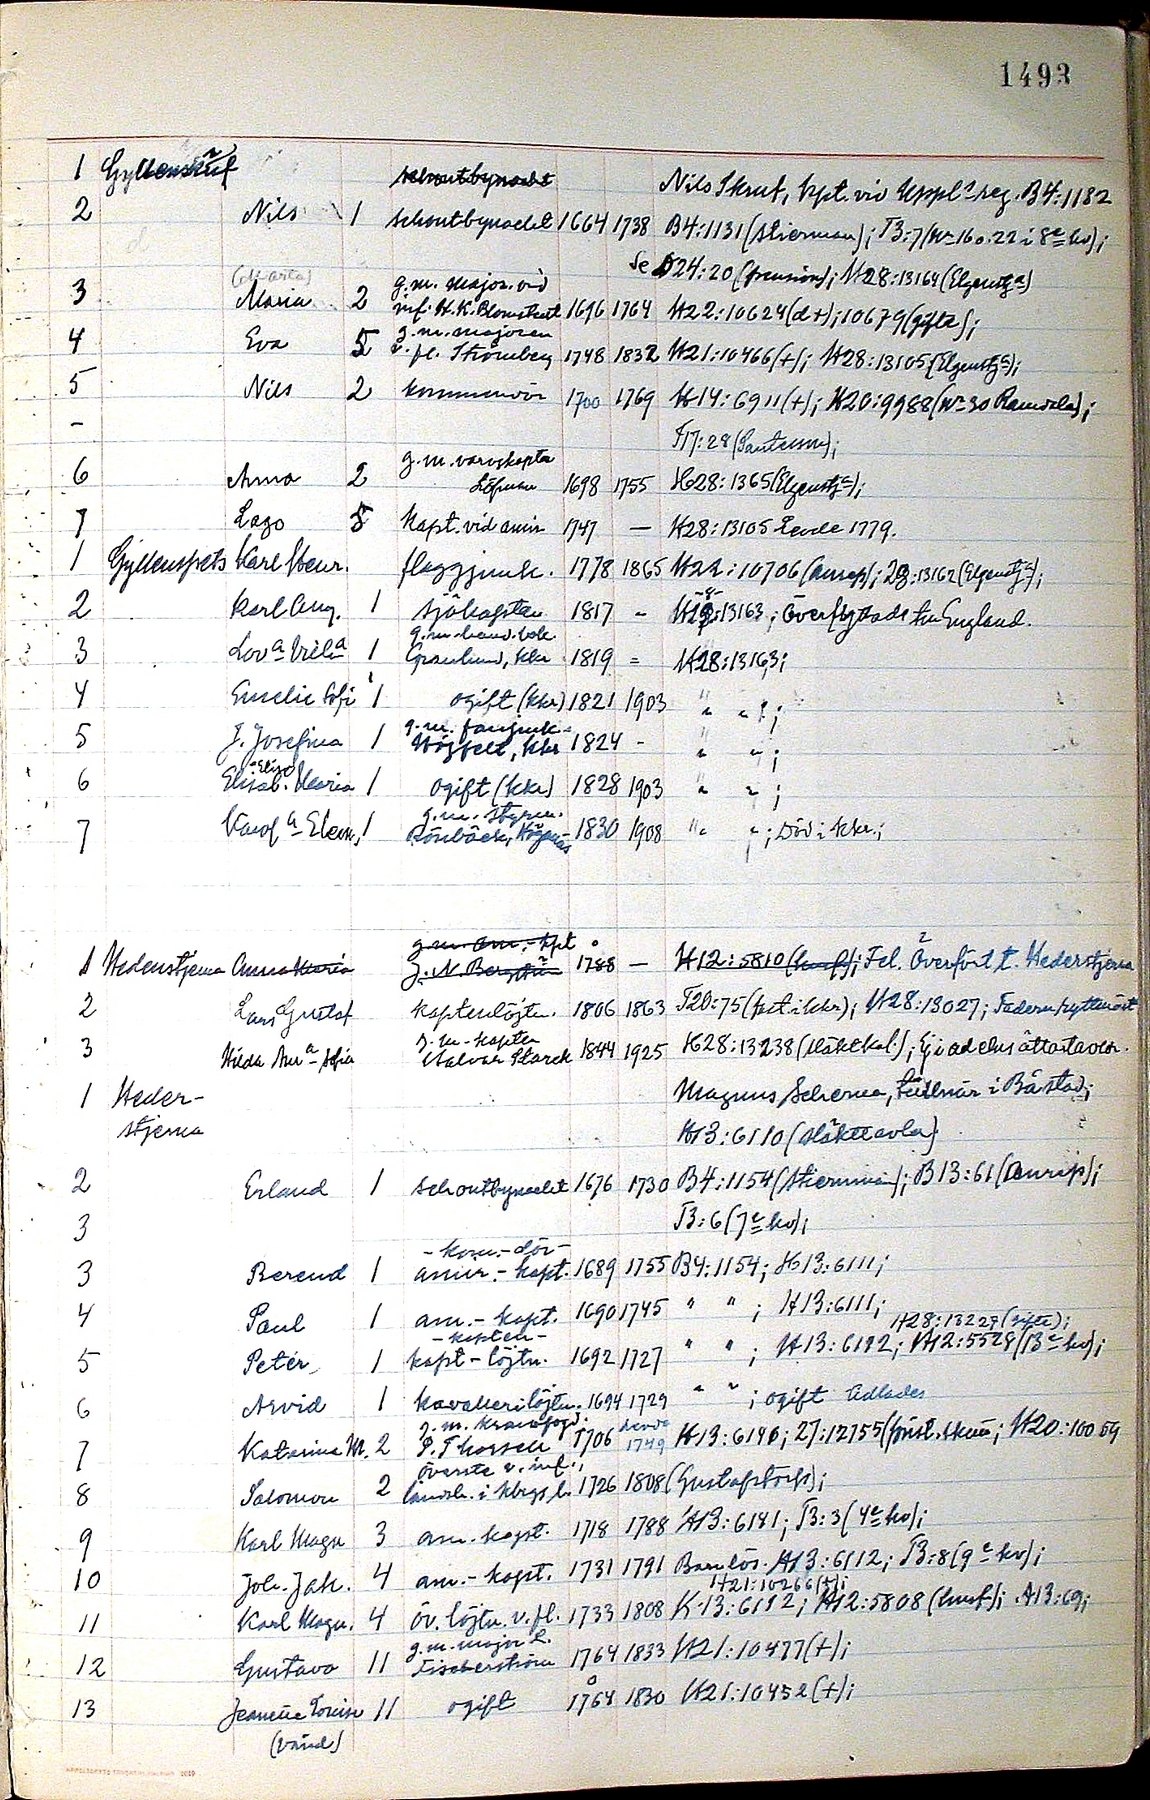 1493
1 Gyllenskruf schoutbynacht Nils Skruf, kpt. vid Uppl. reg. B4:1182
2 Nils 1 schoutbynacht 1664 1738 B4:1131 (Stiernman); T3:7 (Nr 16 o. 22 i 8e kv);
Se D24:20 (pension); H28:13164 (Elgenstja)
(Märta) g.m. major vid
3 Maria 2 inf. K.K. Blomstedt 1696 1764 H22:10624 (d+); 10679 (gifta);
g.m. majoren
4 Eva 5 v. fl. Strömberg 1748 1832 H21:10466 (+); H28:13105 (Elgenstja);
5 Nils 2 kommendör 1700 1769 H14:6911 (+); H20:9988 (Nr 30 Ramdala);
- T17:28 (Santesson);
g.m. varvskapten
6 Anna 2 Löfman 1698 1755 H28:1365 (Elgenstja);
7 Lago 5 Kapt. vid amir 1747 — H28:13105 Levde 1779.
1 Gyllenspets Karl Henr. flaggjunk. 1778 1865 H22:10706 (Anrep); 28:13162 (Elgenstja);
2 Karl Aug. 1 sjökapten 1817 - H28:13163; Överflyttade till England.
3 Lova Vila 1 Grönlund, kkr 1819 = H28:13163;
4 Emelie Sofi 1 ogift (kkr) 1821 1903 " " ;
g.m. fanjunk.
5 J. Josefina 1 Högfelt, kkr 1824 - " " ;
Elise
6 Elisab. Maria 1 ogift (kkr) 1828 1903 " " ;
g.m. styrm.
7 Karola Eleon. 1 Rönbäck, Höganäs 1830 1908 " " ; Död i kkr.;
g.m. am.-kpt
1 Hedenstjerna Anna Maria J. N. Bergström 1788 — H12:5810 (husf); Fel. Överfört t. Hederstjerna
2 Lars Gustaf kaptenlöjtn. 1806 1863 T20:75 (fast i kkr); H28:13027; Fadern ryttmäst
g.m. kapten
3 Hilda Ana Sofia Halvar Starck 1844 1925 H28:13238 (Släktkal.); Ej i adelns ättartavlor.
1 Heder- Magnus Scherna, tullnär i Båstad;
stjerna H13:6110 (släkttavla)
2 Erland 1 schoutbynacht 1676 1730 B4:1154 (Stiernman); B13:61 (Anrep);
3 T3:6 (7e kv);
- kom.-dör -
3 Berend 1 amir.-kapt. 1689 1755 B4:1154; H13:6111;
4 Paul 1 am.-kapt. 1690 1745 " " ; H13:6111;
- kapten - H28:13229 (gifte);
5 Peter 1 kapt-löjtn. 1692 1727 " " ; H13:6112; H12:5529 (13e kv);
6 Arvid 1 kavallerilöjtn. 1694 1729 " " ; ogift Adlades
g.m. kronofogd. levde
7 Katarina M. 2 P. Thorsell 1706 1749 H13:6140; 27:12755 ; H20:10059
överste v. inf.,
8 Salomon 2 landsh. i kbrgs l. 1726 1808 (Gustafstorp);
9 Karl Magn 3 am. kapt. 1718 1788 H13:6141; T3:3 (4e kv);
10 Joh. Jak. 4 am.-kapt. 1731 1791 Barnlös. H13:6112; T3:8 (9e kv);
H21:10266 (+);
11 Karl Magn. 4 öv. löjtn. v. fl. 1733 1808 H13:6112; H12:5808 (husf); A13:69;
g.m. major L.
12 Gustava 11 Fischerström 1764 1833 H21:10477 (+);
13 Jeanette Louise 11 ogift 1764 1830 H21:10452 (+);
(vänd)